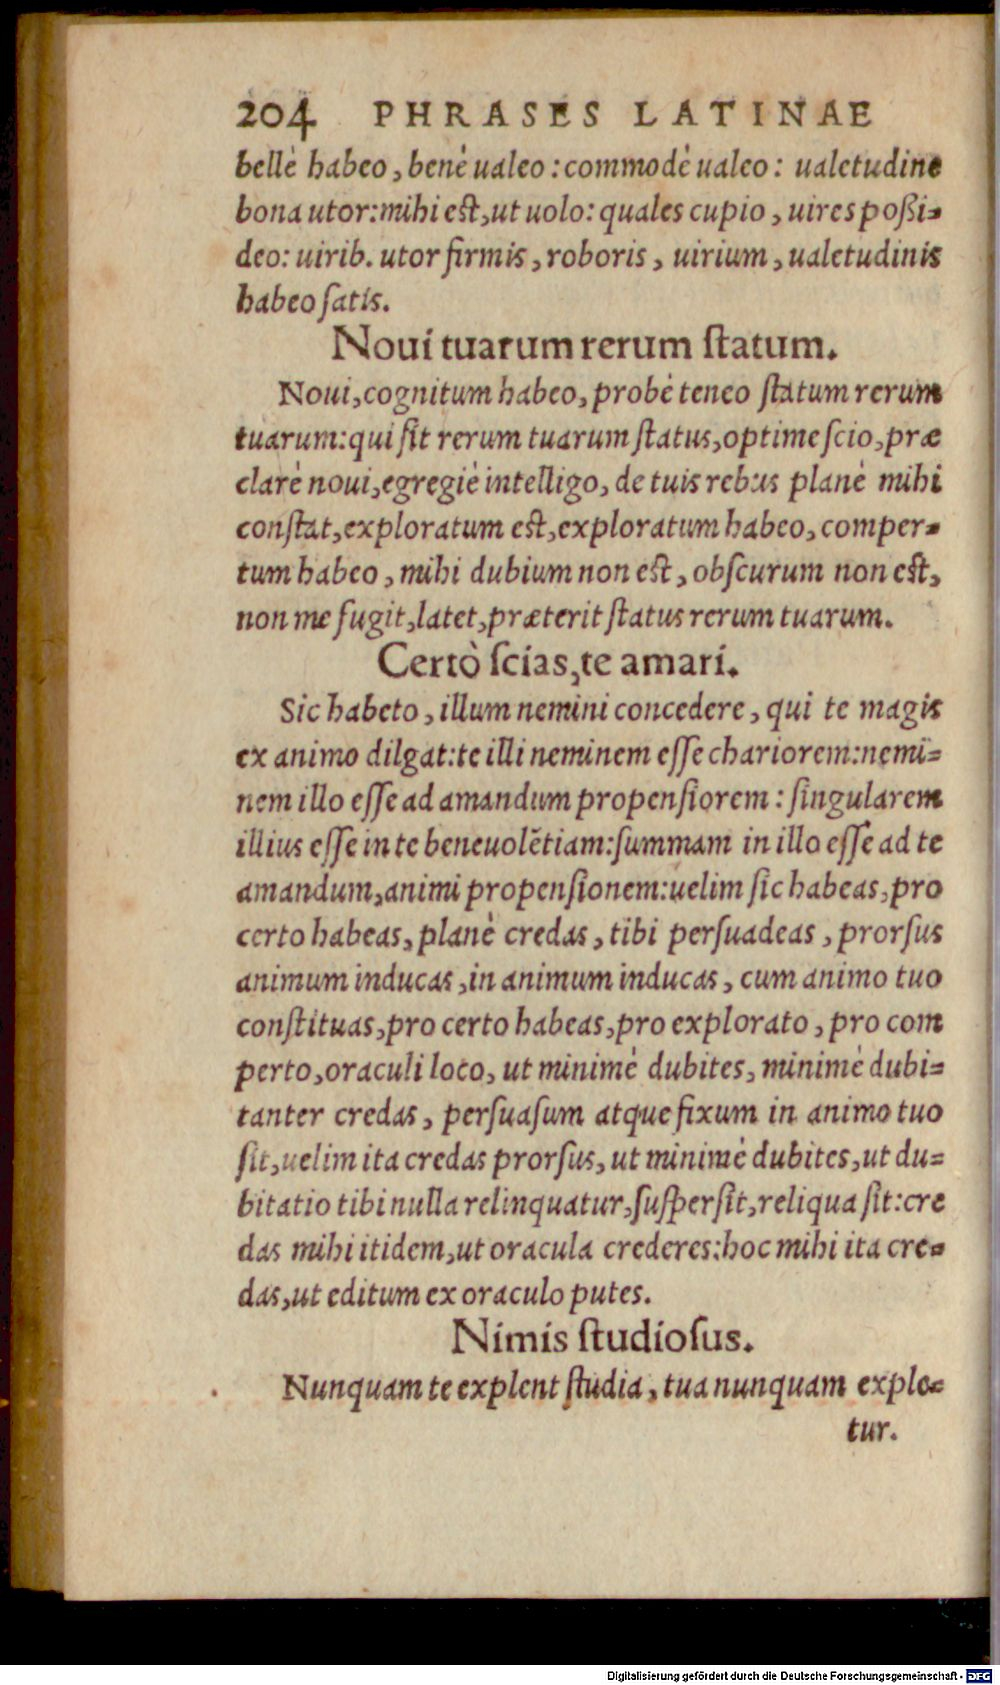 204 PHRASES LATINAE
bellè habeo, benè ualeo: commodè ualeo: ualetudine
bona utor: mihi est, ut uolo: quales cupio, uires poßi-
deo: uirib. utor firmis, roboris, uirium, ualetudinis
habeo satis.
Noui tuarum rerum statum.
Noui, cognitum habeo, probè teneo statum rerum
tuarum: qui sit rerum tuarum status, optime scio, præ
clarè noui, egregiè intelligo, de tuis rebus planè mihi
constat, exploratum est, exploratum habeo, comper-
tum habeo, mihi dubium non est, obscurum non est,
non me fugit, latet, præterit status rerum tuarum.
Certò scias, te amari.
Sic habeto, illum nemini concedere, qui te magis
ex animo dilgat: te illi neminem esse chariorem: nemi-
nem illo esse ad amandum propensiorem: singularem
illius esse in te beneuolētiam: summam in illo esse ad te
amandum, animi propensionem: uelim sic habeas, pro
certo habeas, planè credas, tibi persuadeas, prorsus
animum inducas, in animum inducas, cum animo tuo
constituas, pro certo habeas, pro explorato, pro com
perto, oraculi loco, ut minimè dubites, minimè dubi-
tanter credas, persuasum atque fixum in animo tuo
sit, uelim ita credas prorsus, ut minimè dubites, ut du-
bitatio tibi nulla relinquatur, supersit, reliqua sit: cre
das mihi itidem, ut oracula crederes: hoc mihi ita cre-
das, ut editum ex oraculo putes.
Nimis studiosus.
Nunquam te explent studia, tua nunquam exple-
tur.
Digitalisierung gefördert durch die Deutsche Forschungsgemeinschaft - DFG